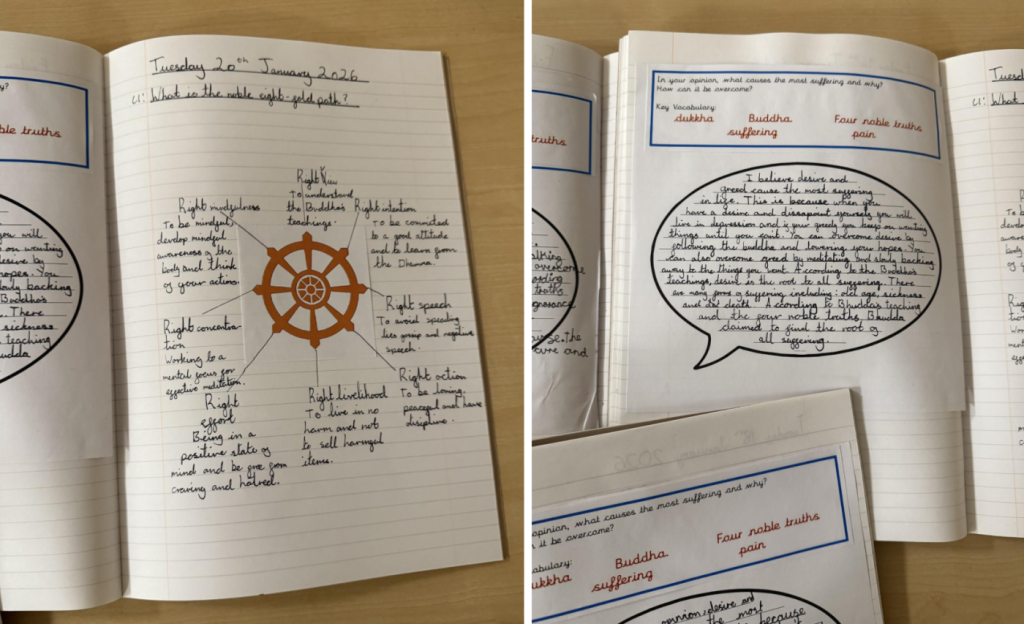 y?
ble truths
you will
on wanting
desire by
hopes. You
slowly backing
Buddha's
There
sickness
teaching
Buddha
Tuesday 20th January 2026
LI: What is the noble eight-fold path?
Right View
To understand
the Buddha's
teachings.
Right intention
To be convicted
to a good attitude
and to learn from
the Dhamma.
Right speech
To avoid speaking
lies gossip and negative
speech.
Right action
To be loving,
peaceful and have
discipline.
Right livelihood
To live in no
harm and not
to sell harmful
items.
Right
effort
Being in a
positive state of
mind and be free from
craving and hatred.
Right concentra-
tion
Working to a
mental focus for
effective meditation.
Right mindfulness
To be mindful,
develop mindful
awareness of the
body and think
of your actions.
truths
In your opinion, what causes the most suffering and why?
How can it be overcome?
Key Vocabulary:
dukkha Buddha Four noble truths
suffering pain
I believe desire and
greed cause the most suffering
in life. This is because when you
have a desire and dissapoint yourself you will
live in depression and if your greedy you keep on wanting
things until you quit. You can overcome desire by
following the buddha and lowering your hopes. You
can also overcome greed by meditating and slowly backing
away to the things you want. According to the Buddha's
teachings, desire is the root to all suffering. There
are many forms of suffering including: old age, sickness
and death. According to Bhudda's teaching
and the four noble truths, Bhudda
claimed to find the root of
all suffering.
Tuesd
LI: What
opinion, what causes the most suffering and why?
it be overcome?
abulary:
ukkha Buddha Four noble truths
suffering pain
opinion, desire and
the most
because